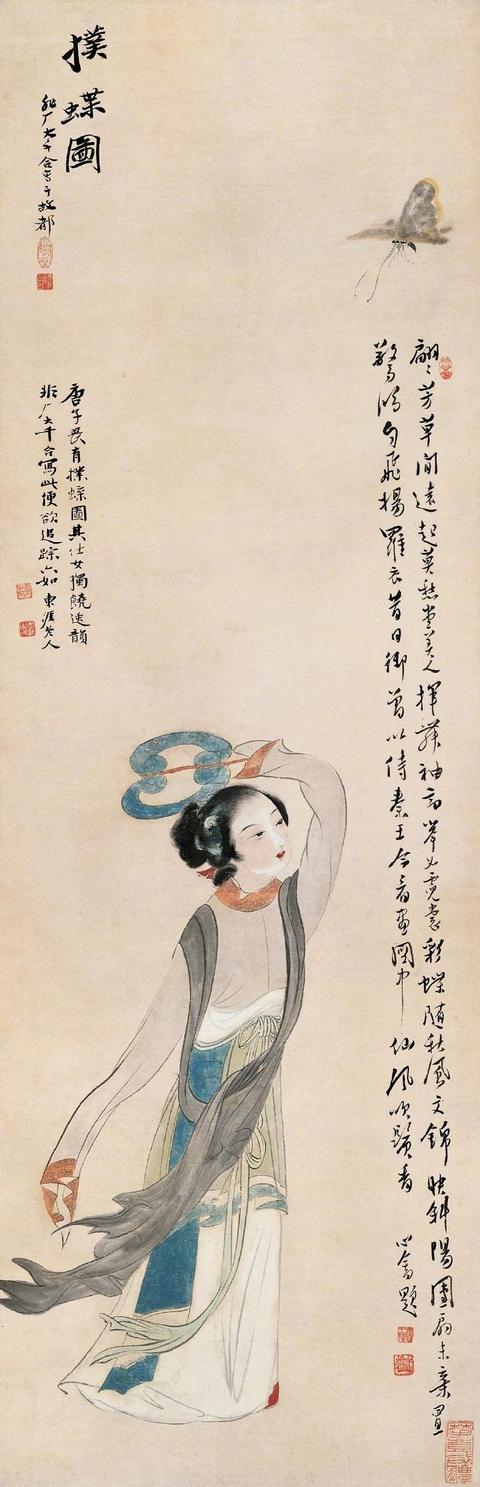 撲蝶圖
非厂大千合寫于故都
翩〻芳草間遠起莫愁堂美人揮舞袖高舉如霓裳彩蝶隨秋風文錦映斜陽團扇未棄置
驚鴻勿飛揚羅衣昔日御曾以侍秦王今看畫圖中仙風吹鬢香 心畬題
唐子畏有撲蝶圖其仕女獨饒逸韻
非厂大千合寫此便欲追踪六如 東涯老人